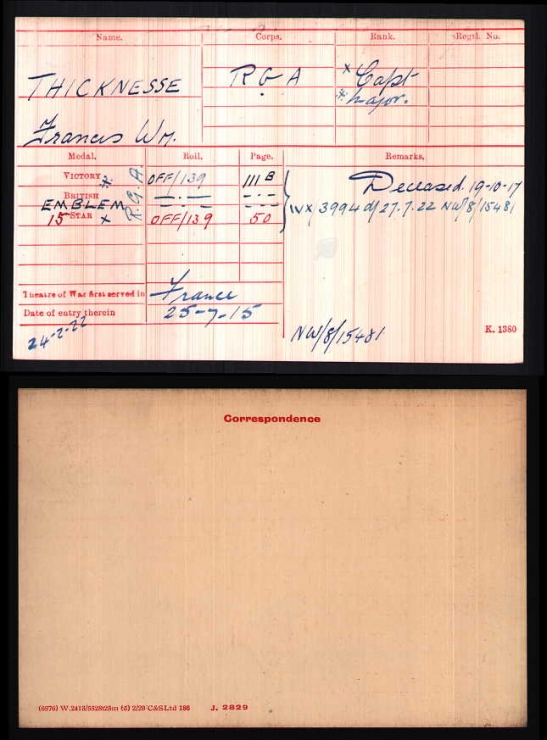 Name. Corps. Rank. Regtl. No.
THICKNESSE R G A x Capt
* Major.
Francis Wm.
Medal. Roll. Page. Remarks.
VICTORY * R.G.A. OFF/139 111 B Deceased. 19-10-17
BRITISH — . — — . —
EMBLEM WX 3994 d/ 27.7.22 NW/8/15481
15 STAR x OFF/139 50
Theatre of War first served in France
Date of entry therein 25-7-15
24-2-22 NW/8/15481 K. 1380
Correspondence
J. 2829